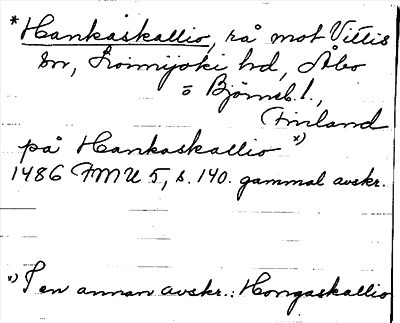 * Hankaskallio, rå mot Vittis
sn, Loimijoki hd, Åbo
o Björneb. l.,
Finland
på Hankaskallio x)
1486 FMU 5, s. 140. gammal avskr.
x) I en annan avskr.: Hongaskallio